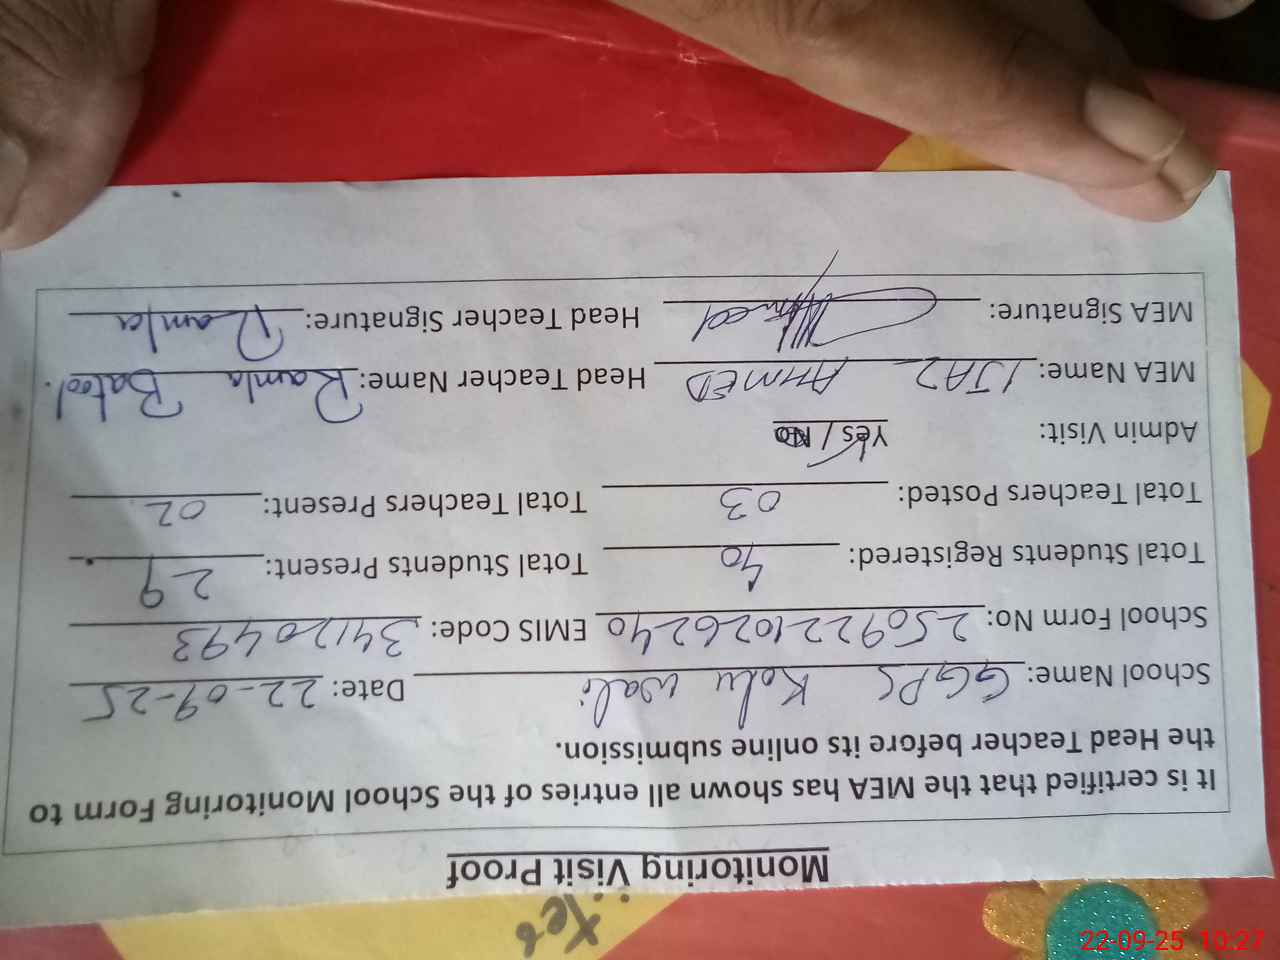 Monitoring Visit Proof
It is certified that the MEA has shown all entries of the School Monitoring Form to
the Head Teacher before its online submission.
School Name: GGPS Kolu wali Date: 22-09-25
School Form No: 2509221026240 EMIS Code: 34120493
Total Students Registered: 40 Total Students Present: 29
Total Teachers Posted: 03 Total Teachers Present: 02
Admin Visit: Yes / No
MEA Name: IJAZ AHMED Head Teacher Name: Ramla Batool.
MEA Signature: Ahmed Head Teacher Signature: Ramla
22-09-25 10:27